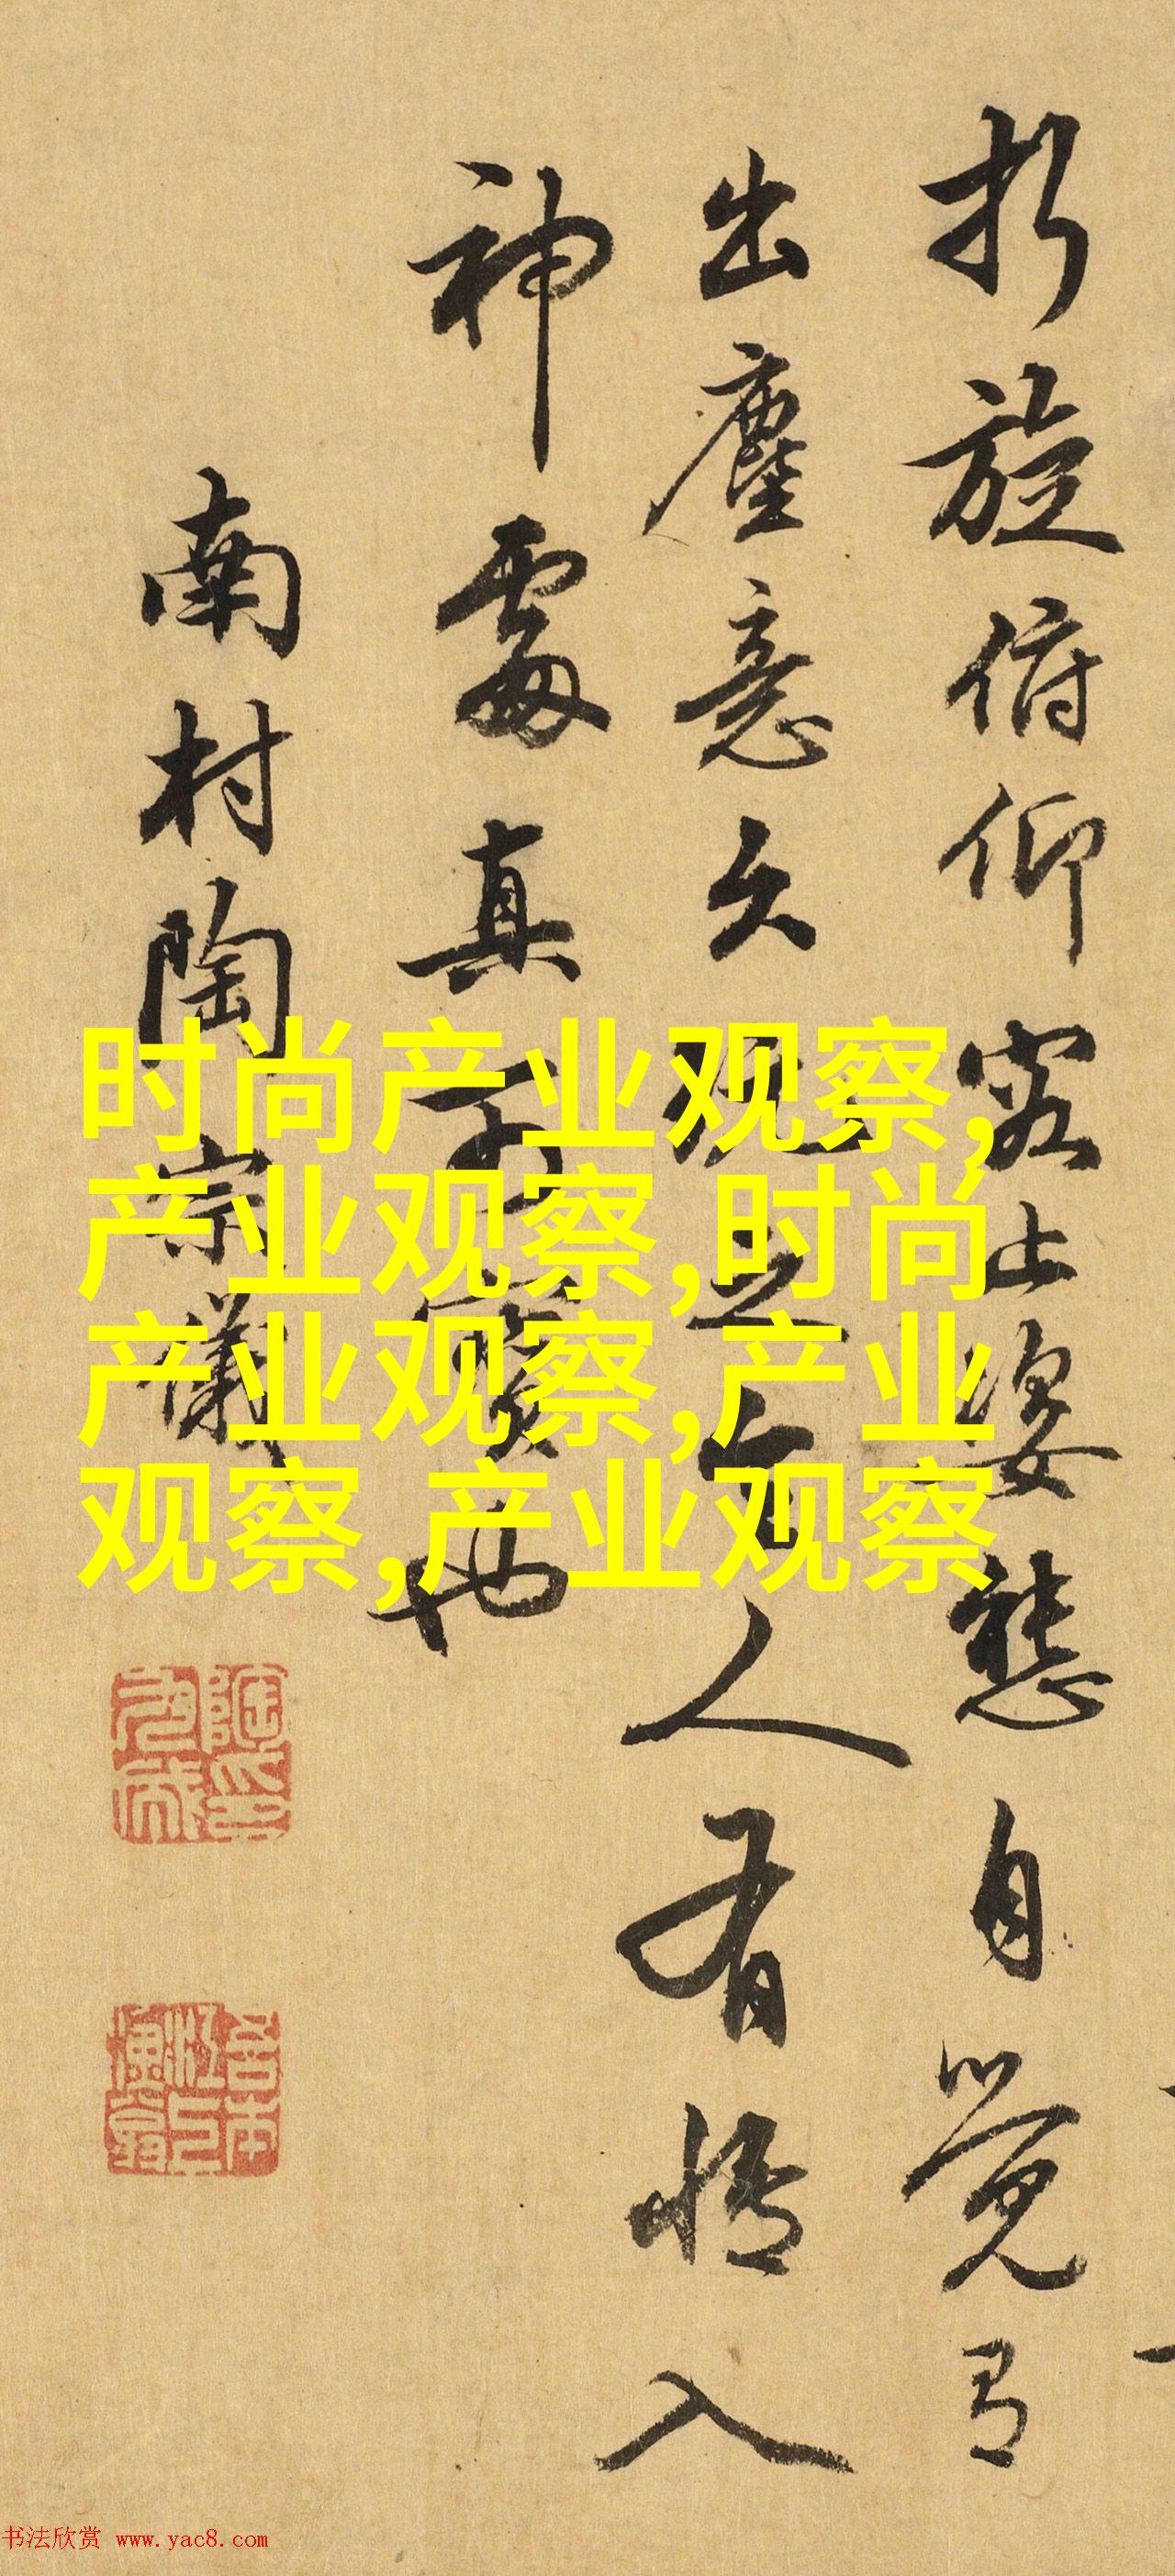 折旋俯仰容止姿態自覺有
出塵意久視之令人有悟入
神處真可寶也
南村陶宗儀
时尚产业观察,
产业观察,时尚
产业观察,产业
观察,产业观察
书法欣赏 www.yac8.com